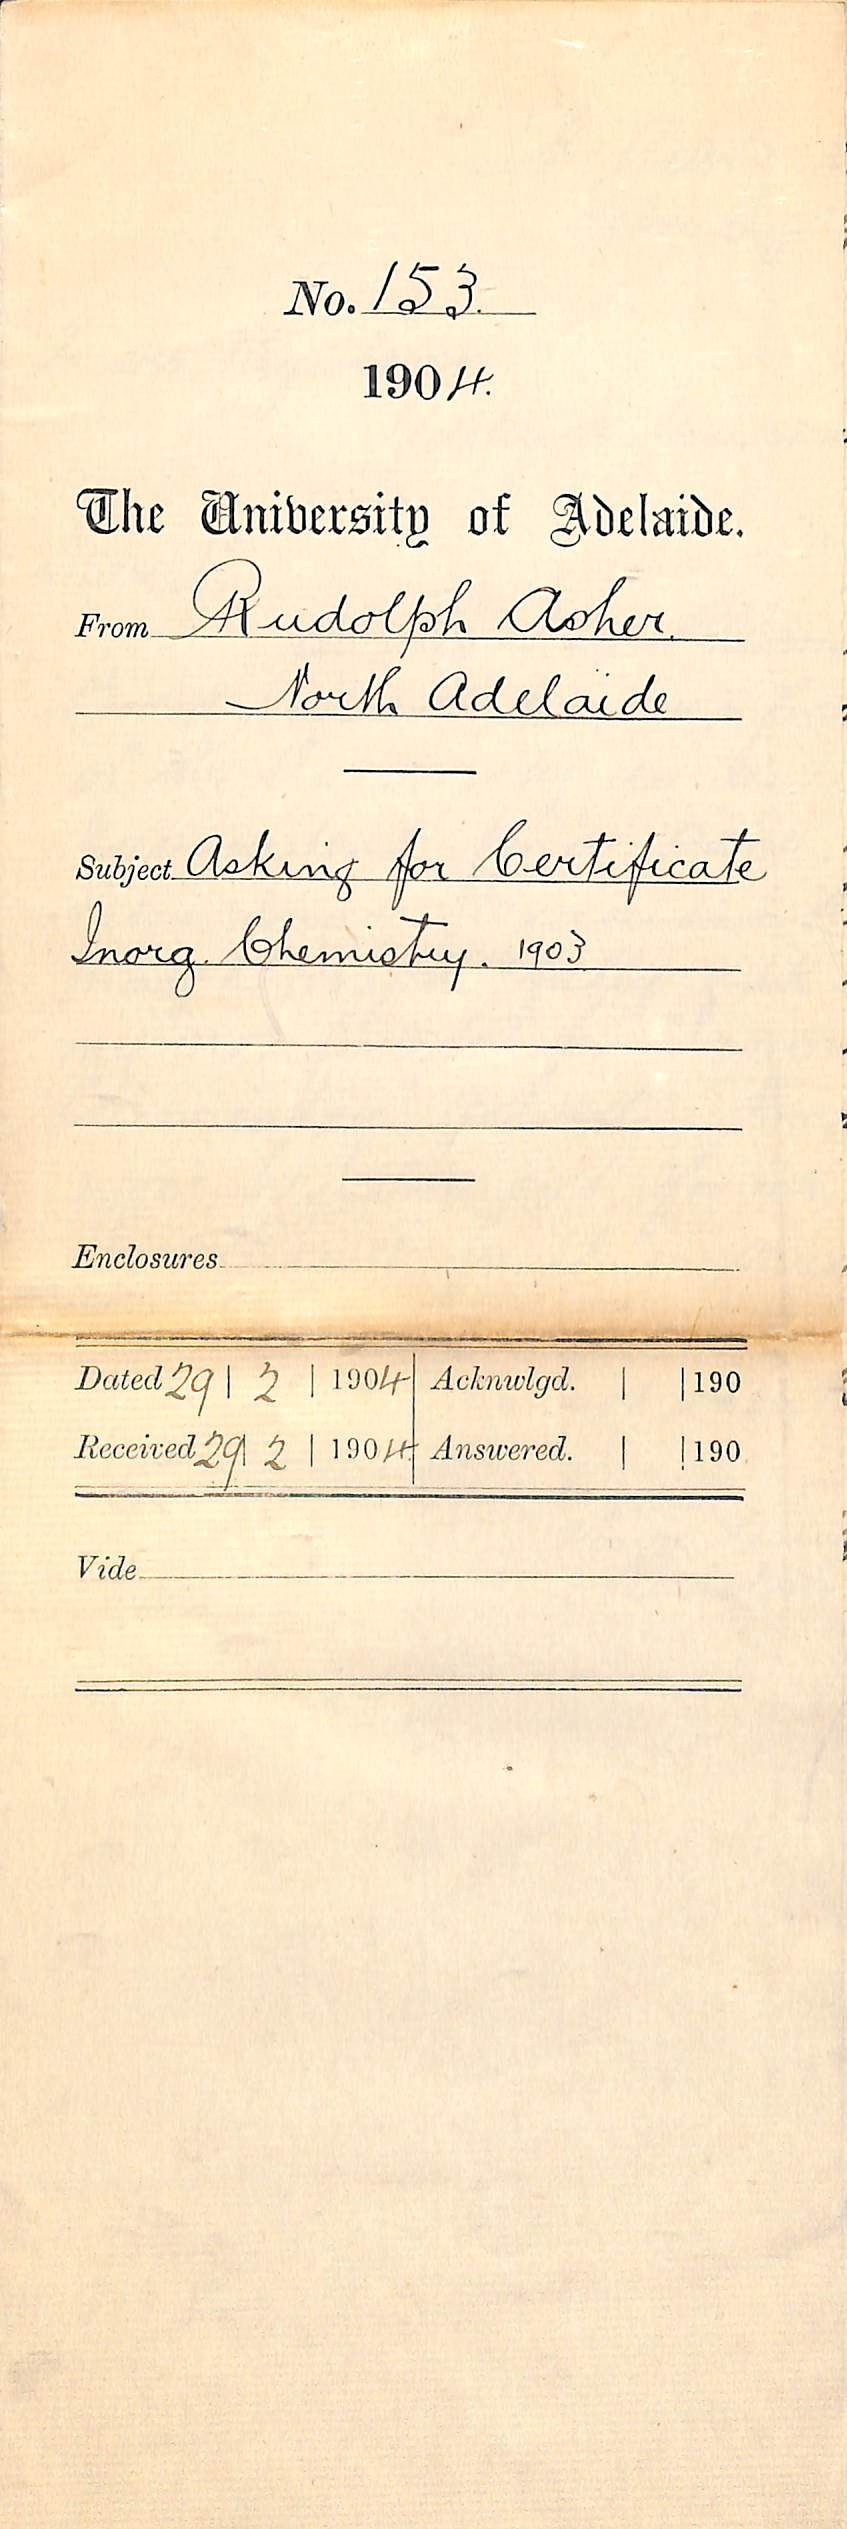 No. 153.
1904.
The University of Adelaide.
From Rudolph Asher.
North Adelaide
Subject Asking for Certificate
Inorg. Chemistry. 1903
Enclosures
Dated 29 | 2 | 1904 Acknwlgd. | | 190
Received 29 | 2 | 1904. Answered. | | 190
Vide